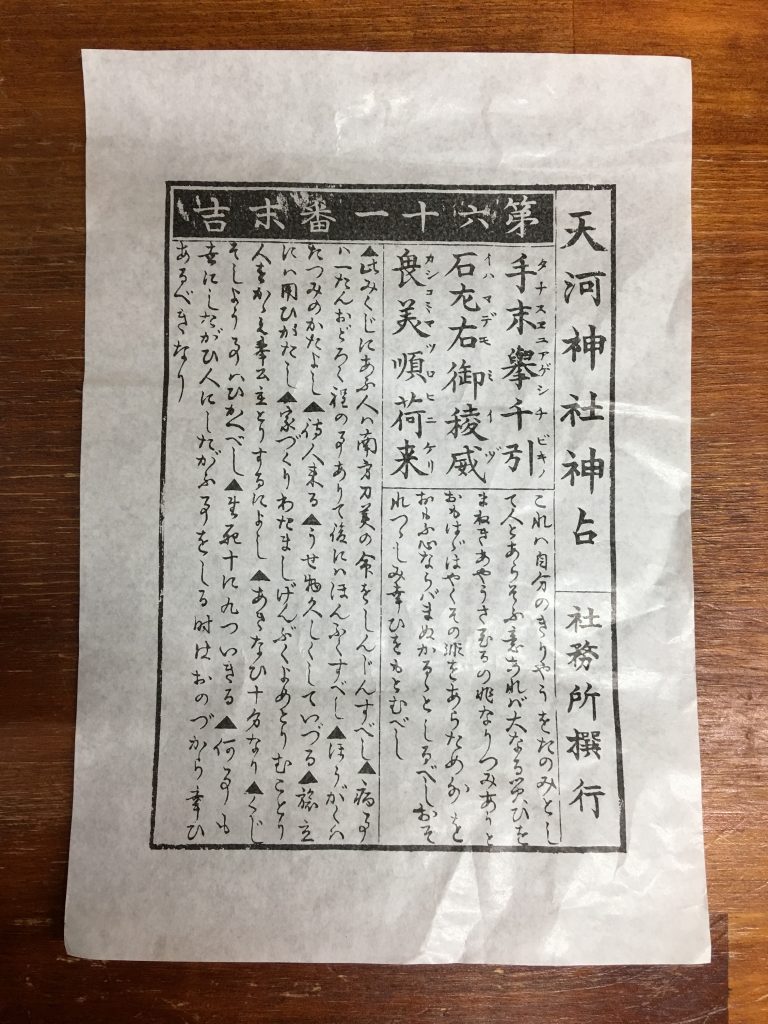 天河神社神占
社務所撰行
第六十一番末吉
タナスヱニアゲシチビキノ
手末擧千引
イハマデモミイヅ
石左右御稜威
カシコミマツロヒニケリ
畏美順荷来
これハ自分のきりやうをたのみとし
て人とあらそふ意あれバ大なる災ひを
まねきあやうさ至るの兆なりつみありと
おもはゞはやくその非をあらため
おもふ心ならバまぬかるゝとしるべしおそ
れつゝしみ幸ひをもとむべし
▲此みくじにあふ人ハ南方刀美の命をしんじんすべし▲病事
ハ一たんおどろく程の事ありて後にハほんぷくすべし▲ほうがくハ
たつみのかたよし▲待人来る▲うせ物久しくしていづる▲旅立
にハ用ひがたし▲家づくりわたましげんぶくよめとりむことり
人をかゝへ奉公立とりするによし▲あきなひ十分なり▲くじ
そしよう事ハひかへべし▲生死十に九ついきる▲何事も
世にしたがひ人にしたがふ事をしる時はおのづから幸ひ
あるべきなり